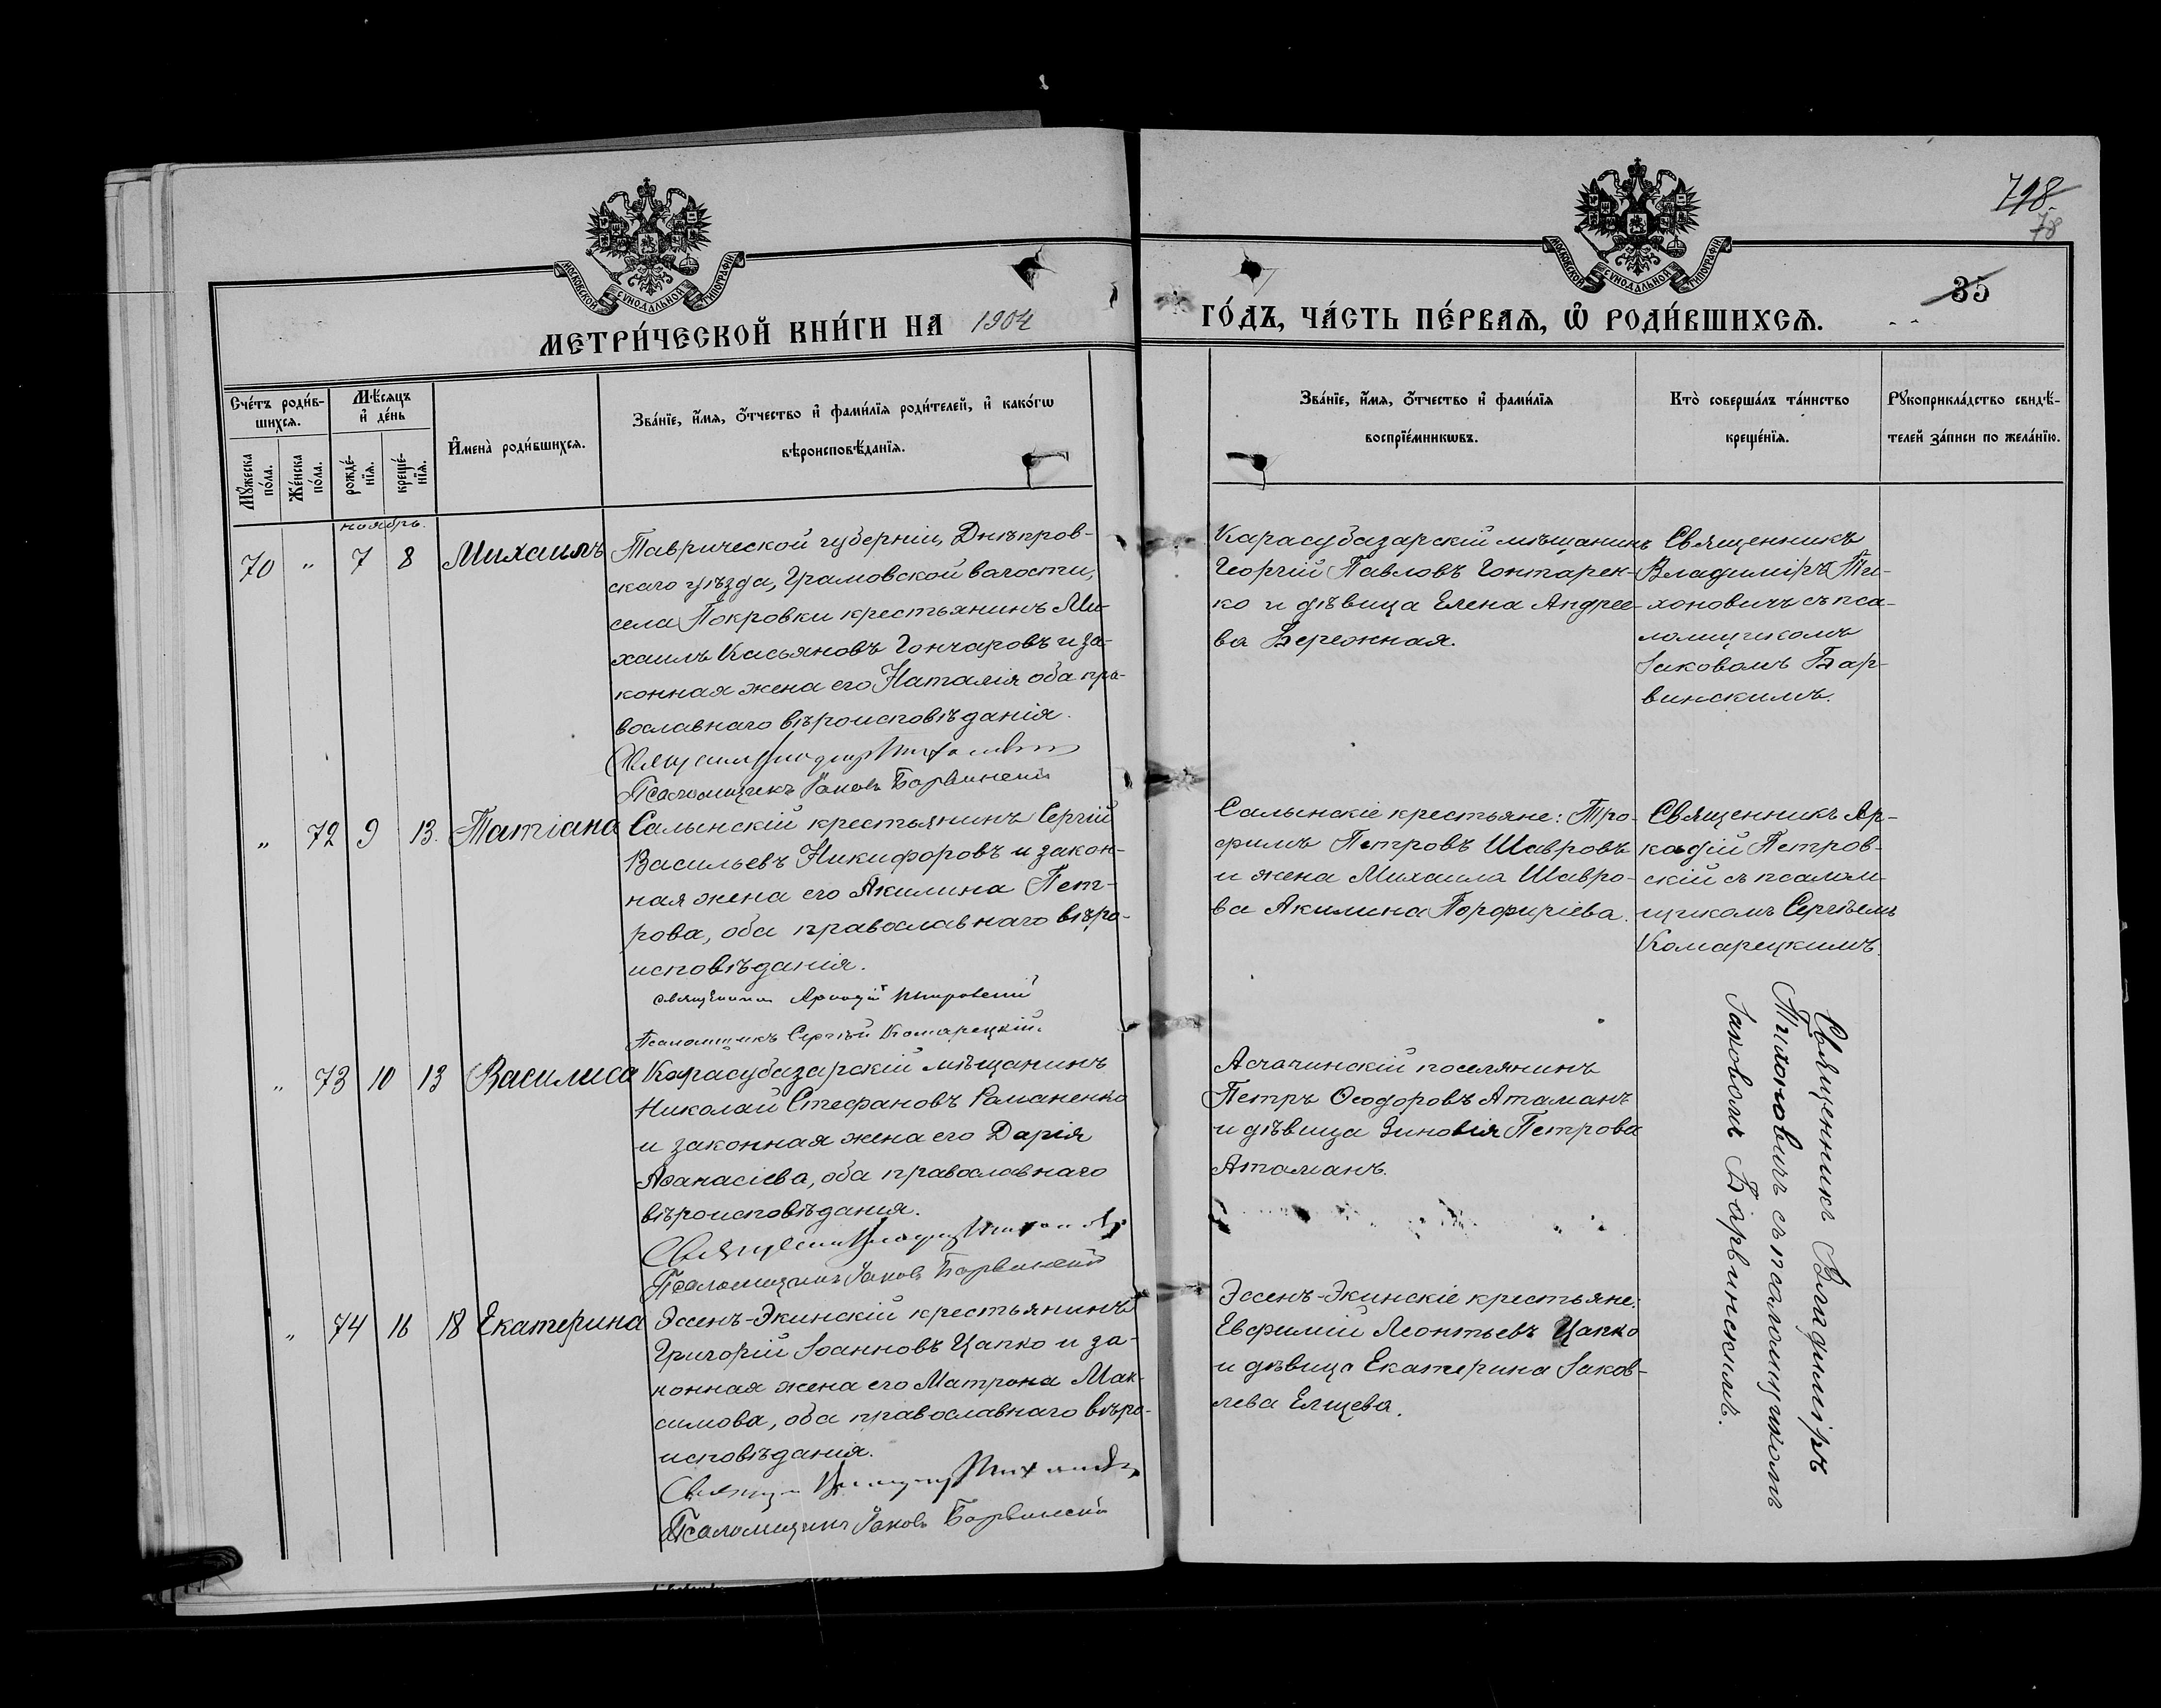 718
78
35
МОСКОВСКОЙ СѴНОДАЛЬНОЙ ТИПОГРАФІИ
МОСКОВСКОЙ СѴНОДАЛЬНОЙ ТИПОГРАФІИ
МЕТРИ́ЧЕСКОЙ КНИ́ГИ НА 1904
ГО́ДЪ, ЧА́СТЬ ПЕ́РВАѦ, Ѡ҆ РОДИ́ВШИХСѦ.
Сче́тъ роди́в-
шихсѧ.
Мꙋ́жеска
по́ла.
Же́нска
по́ла.
Мѣ́сѧцъ
и҆ де́нь
рожде́-
нїѧ.
креще́-
нїѧ.
И҆мена̀ роди́вшихсѧ.
Зва́нїе, и҆́мѧ, ѻ҆́тчество и҆ фами́лїѧ роди́телей, и҆ како́гѡ
вѣроисповѣ́данїѧ.
Зва́нїе, и҆́мѧ, ѻ҆́тчество и҆ фами́лїѧ
воспрїе́мникѡвъ.
Кто̀ соверша́лъ та́инство
креще́нїѧ.
Рꙋкоприкла́дство свидѣ́-
телей за́писи по жела́нїю.
ноябрь.
70 " 7 8 Михаилъ
Таврической губерніи, Днѣпров-
скаго уѣзда, Громовской волости,
села Покровки крестьянинъ Ми-
хаилъ Касьяновъ Гончаровъ и за-
конная жена его Наталія оба пра-
вославнаго вѣроисповѣданія.
Псаломщикъ Іаковъ Барвинскій
Карасубазарскій мѣщанинъ
Георгій Павловъ Гонтарен-
ко и дѣвица Елена Андрее-
ва Бережная.
Священникъ
Владиміръ Ти-
хоновичъ съ пса-
ломщикомъ
Іаковомъ Бар-
винскимъ.
" 72 9 13. Татіана
Салынскій крестьянинъ Сергій
Васильевъ Никифоровъ и закон-
ная жена его Акилина Пет-
рова, оба православнаго вѣро-
исповѣданія.
Священникъ Аркадій Петровскій
Псаломщикъ Сергѣй Комарецкій.
Салынскіе крестьяне: Тро-
фимъ Петровъ Шавровъ
и жена Михаила Шавро-
ва Акилина Порфиріева.
Священникъ Ар-
кадій Петров-
скій съ псалом-
щикомъ Сергѣемъ
Комарецкимъ.
" 73 10 13 Василиса
Карасубазарскій мѣщанинъ
Николай Стефановъ Романенко
и законная жена его Дарія
Аѳанасіева, оба православнаго
вѣроисповѣданія.
Псаломщикъ Іаковъ Барвинскій
Асачинскій поселянинъ
Петръ Ѳеодоровъ Атаманъ
и дѣвица Зиновія Петрова
Атаманъ.
Священникъ Владиміръ
Тихоновичъ съ псаломщикомъ
Іаковомъ Барвинскимъ.
" 74 16 18 Екатерина
Эссенъ-Экинскій крестьянинъ
Григорій Іоанновъ Цапко и за-
конная жена его Матрона Мак-
симова, оба православнаго вѣро-
исповѣданія.
Псаломщикъ Іаковъ Барвинскій
Эссенъ-Экинскіе крестьяне:
Евфимій Леонтьевъ Цапко
и дѣвица Екатерина Іаков-
лева Елщева.